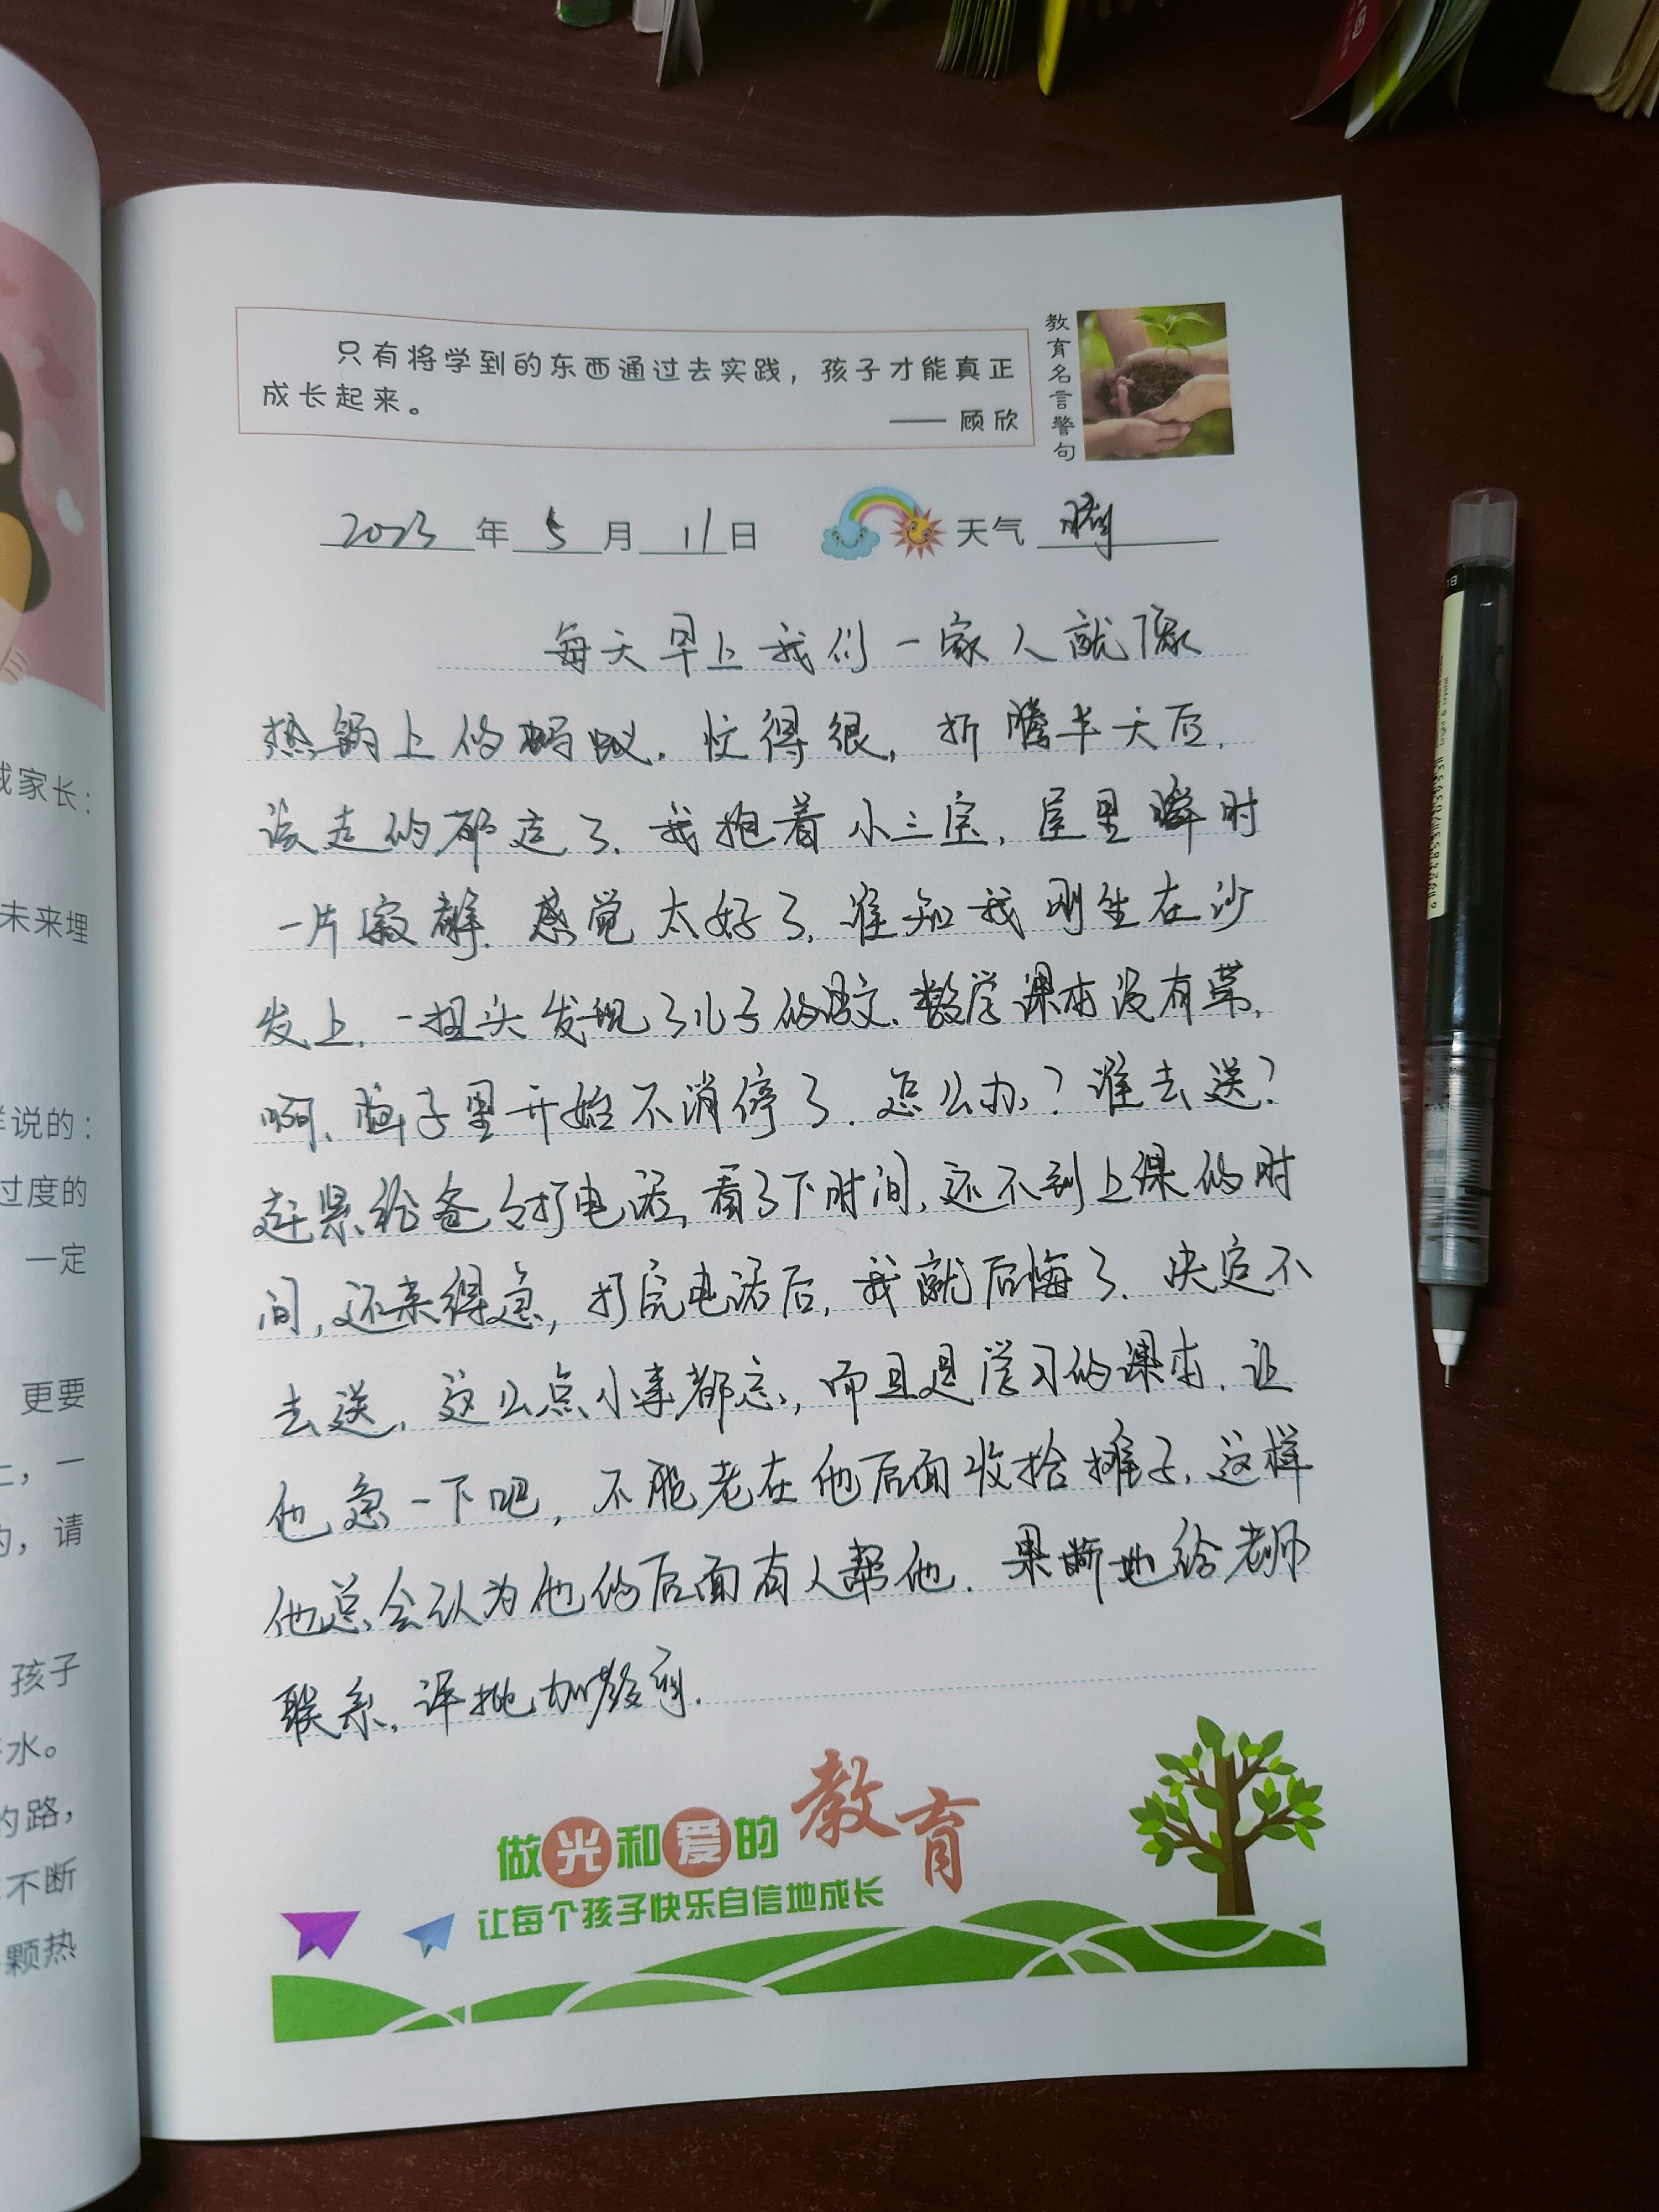 只有将学到的东西通过去实践，孩子才能真正
成长起来。
—— 顾欣
教育名言警句
2023年5月11日 天气 晴
每天早上我们一家人就像
热锅上的蚂蚁，忙得很，折腾半天后，
该走的都走了，我抱着小三宝，屋里瞬时
一片寂静，感觉太好了，谁知我刚坐在沙
发上，一扭头发现了儿子的语文、数学课本没有拿，
啊，脑子里开始不消停了，怎么办？谁去送？
赶紧给爸爸打电话，看了下时间，还不到上课的时
间，还来得急，打完电话后，我就后悔了，决定不
去送，这么点小事都忘，而且是学习的课本，让
他急一下吧，不能老在他后面收拾摊子，这样
他总会认为他的后面有人帮他，果断地给老师
联系，评批加教育，
做光和爱的教育
让每个孩子快乐自信地成长
我家长：
未来埋
样说的：
过度的
一定
更要
上，一
的，请
孩子
水。
的路，
不断
颗热